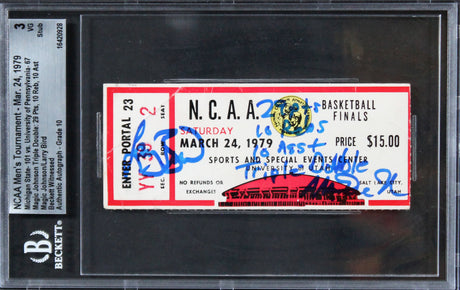 3
VG
Stub
16420928
NCAA Men's Tournament - Mar. 24, 1979
Michigan State- 101 vs. University of Pennsylvania- 67
Magic Johnson Triple Double: 29 Pts, 10 Reb, 10 Ast
Magic Johnson/Larry Bird
Beckett Witnessed
Authentic Autograph - Grade 10
BECKETT
ENTER PORTAL 23
YY 39 2
N.C.A.A.
BASKETBALL
FINALS
SATURDAY
MARCH 24, 1979
PRICE $15.00
SPORTS AND SPECIAL EVENTS CENTER
UNIVERSITY
NO REFUNDS OR
EXCHANGES
SALT LAKE CITY,
29 pts
10 Rebs
10 Asst
Triple